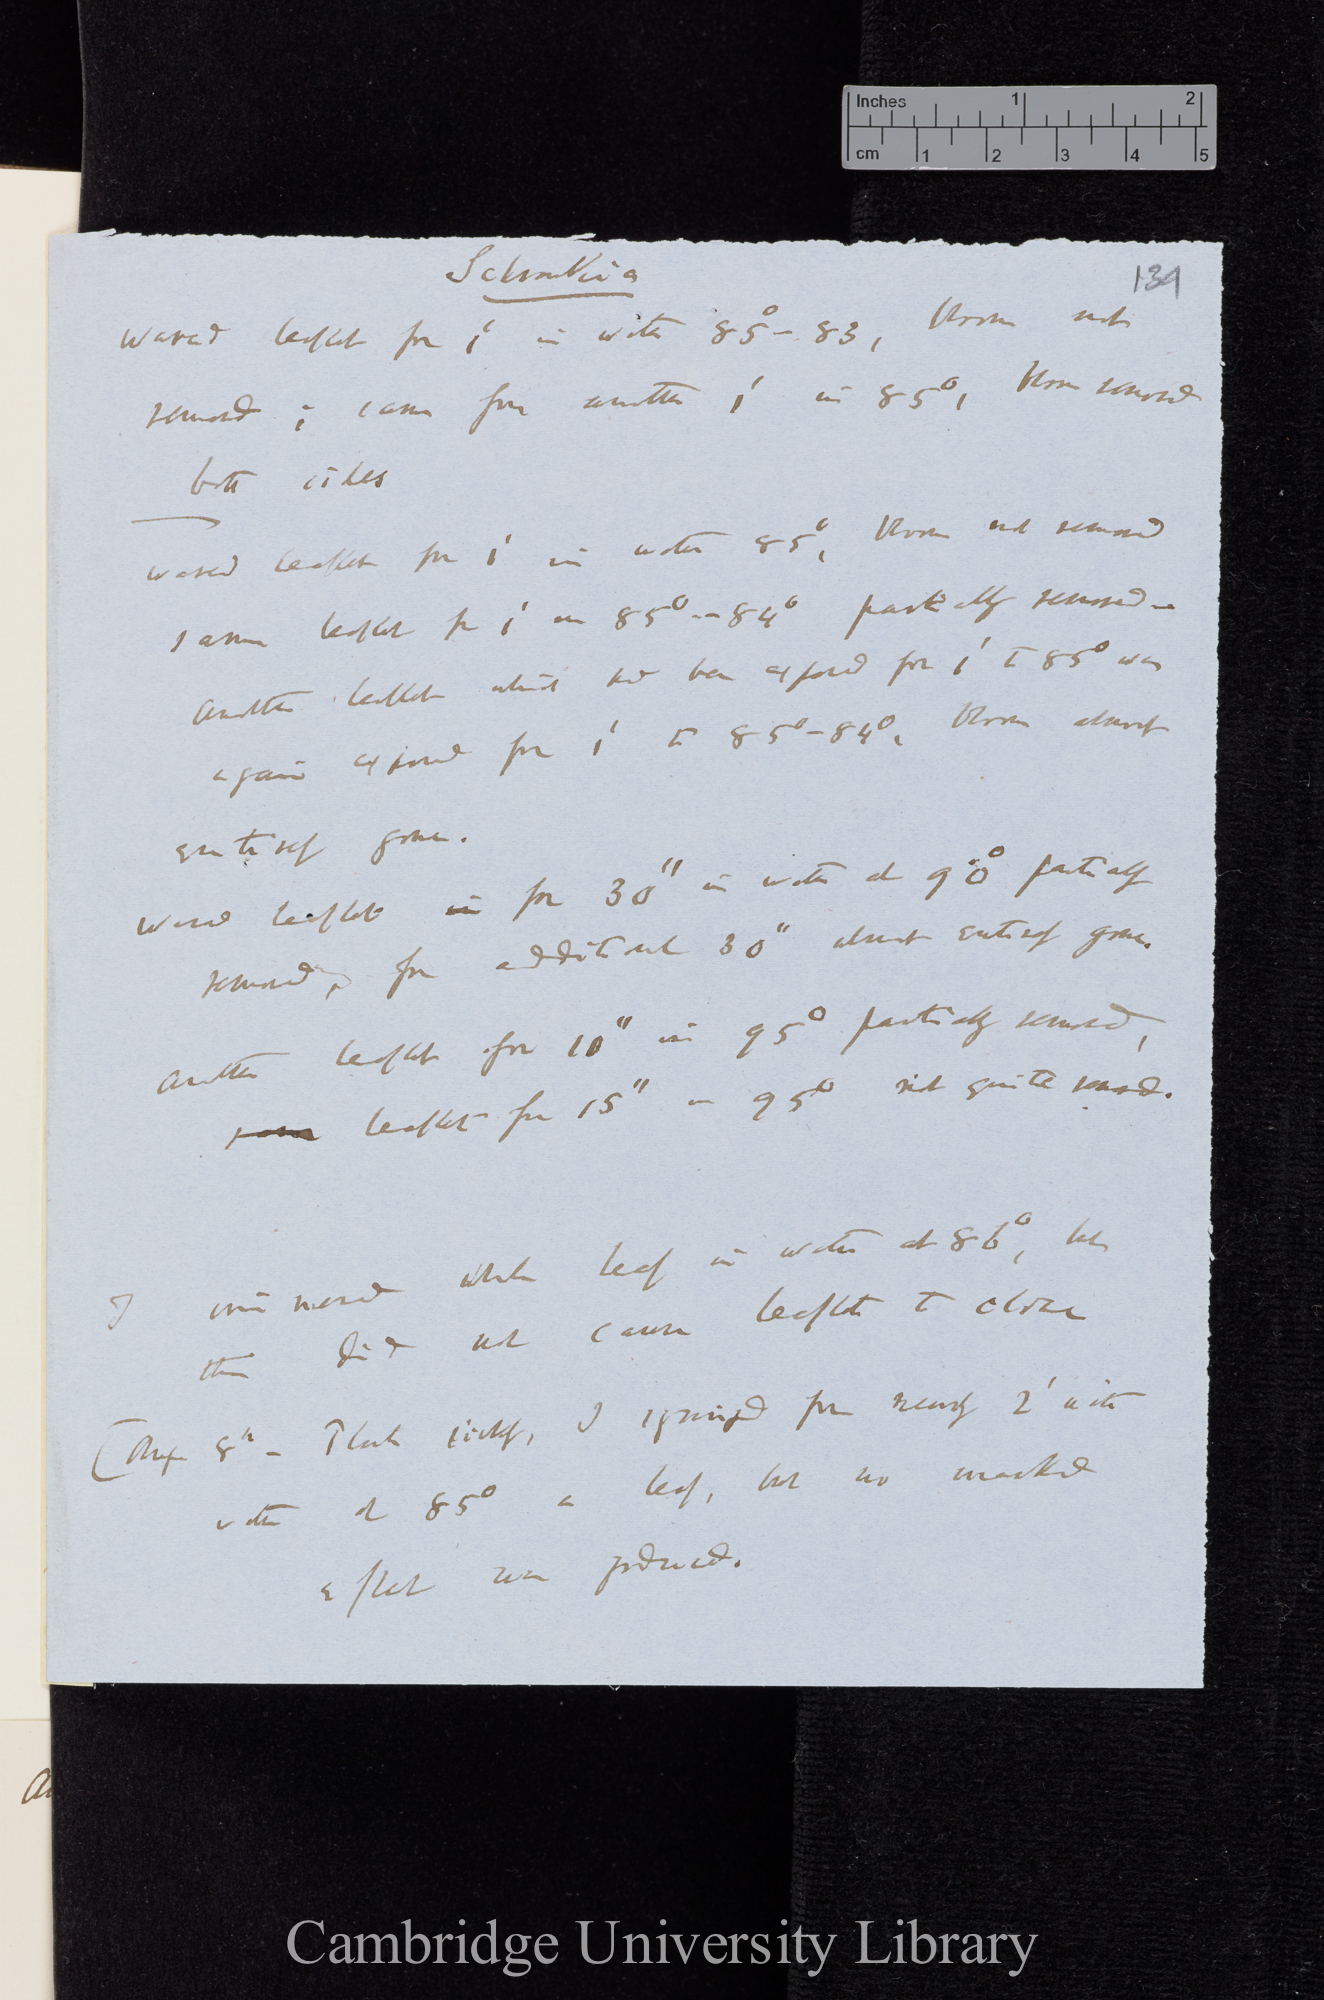 Inches 1 2
cm 1 2 3 4 5
Schrankia
139
Waved leaflet for 1' in water 85°-83, bloom not
removed; same for another 1' in 85°, bloom removed
both sides
waved leaflet for 1' in water 85°, bloom not removed
same leaflet for 1' in 85°-84° partially removed -
another leaflet which had been exposed for 1' to 85° was
again exposed for 1' to 85°-84°, bloom almost
entirely gone.
Waved leaflet in for 30" in water at 90° partially
removed, for additional 30" almost entirely gone.
Another leaflet for 10" in 95° partially removed,
same leaflet for 15" in 95° not quite removed.
I immersed whole leaf in water at 86°, but
this did not cause leaflets to close
(Aug 8th - Plant sickly, I syringed for nearly 2' with
water at 85° a leaf, but no marked
effect was produced.
Cambridge University Library